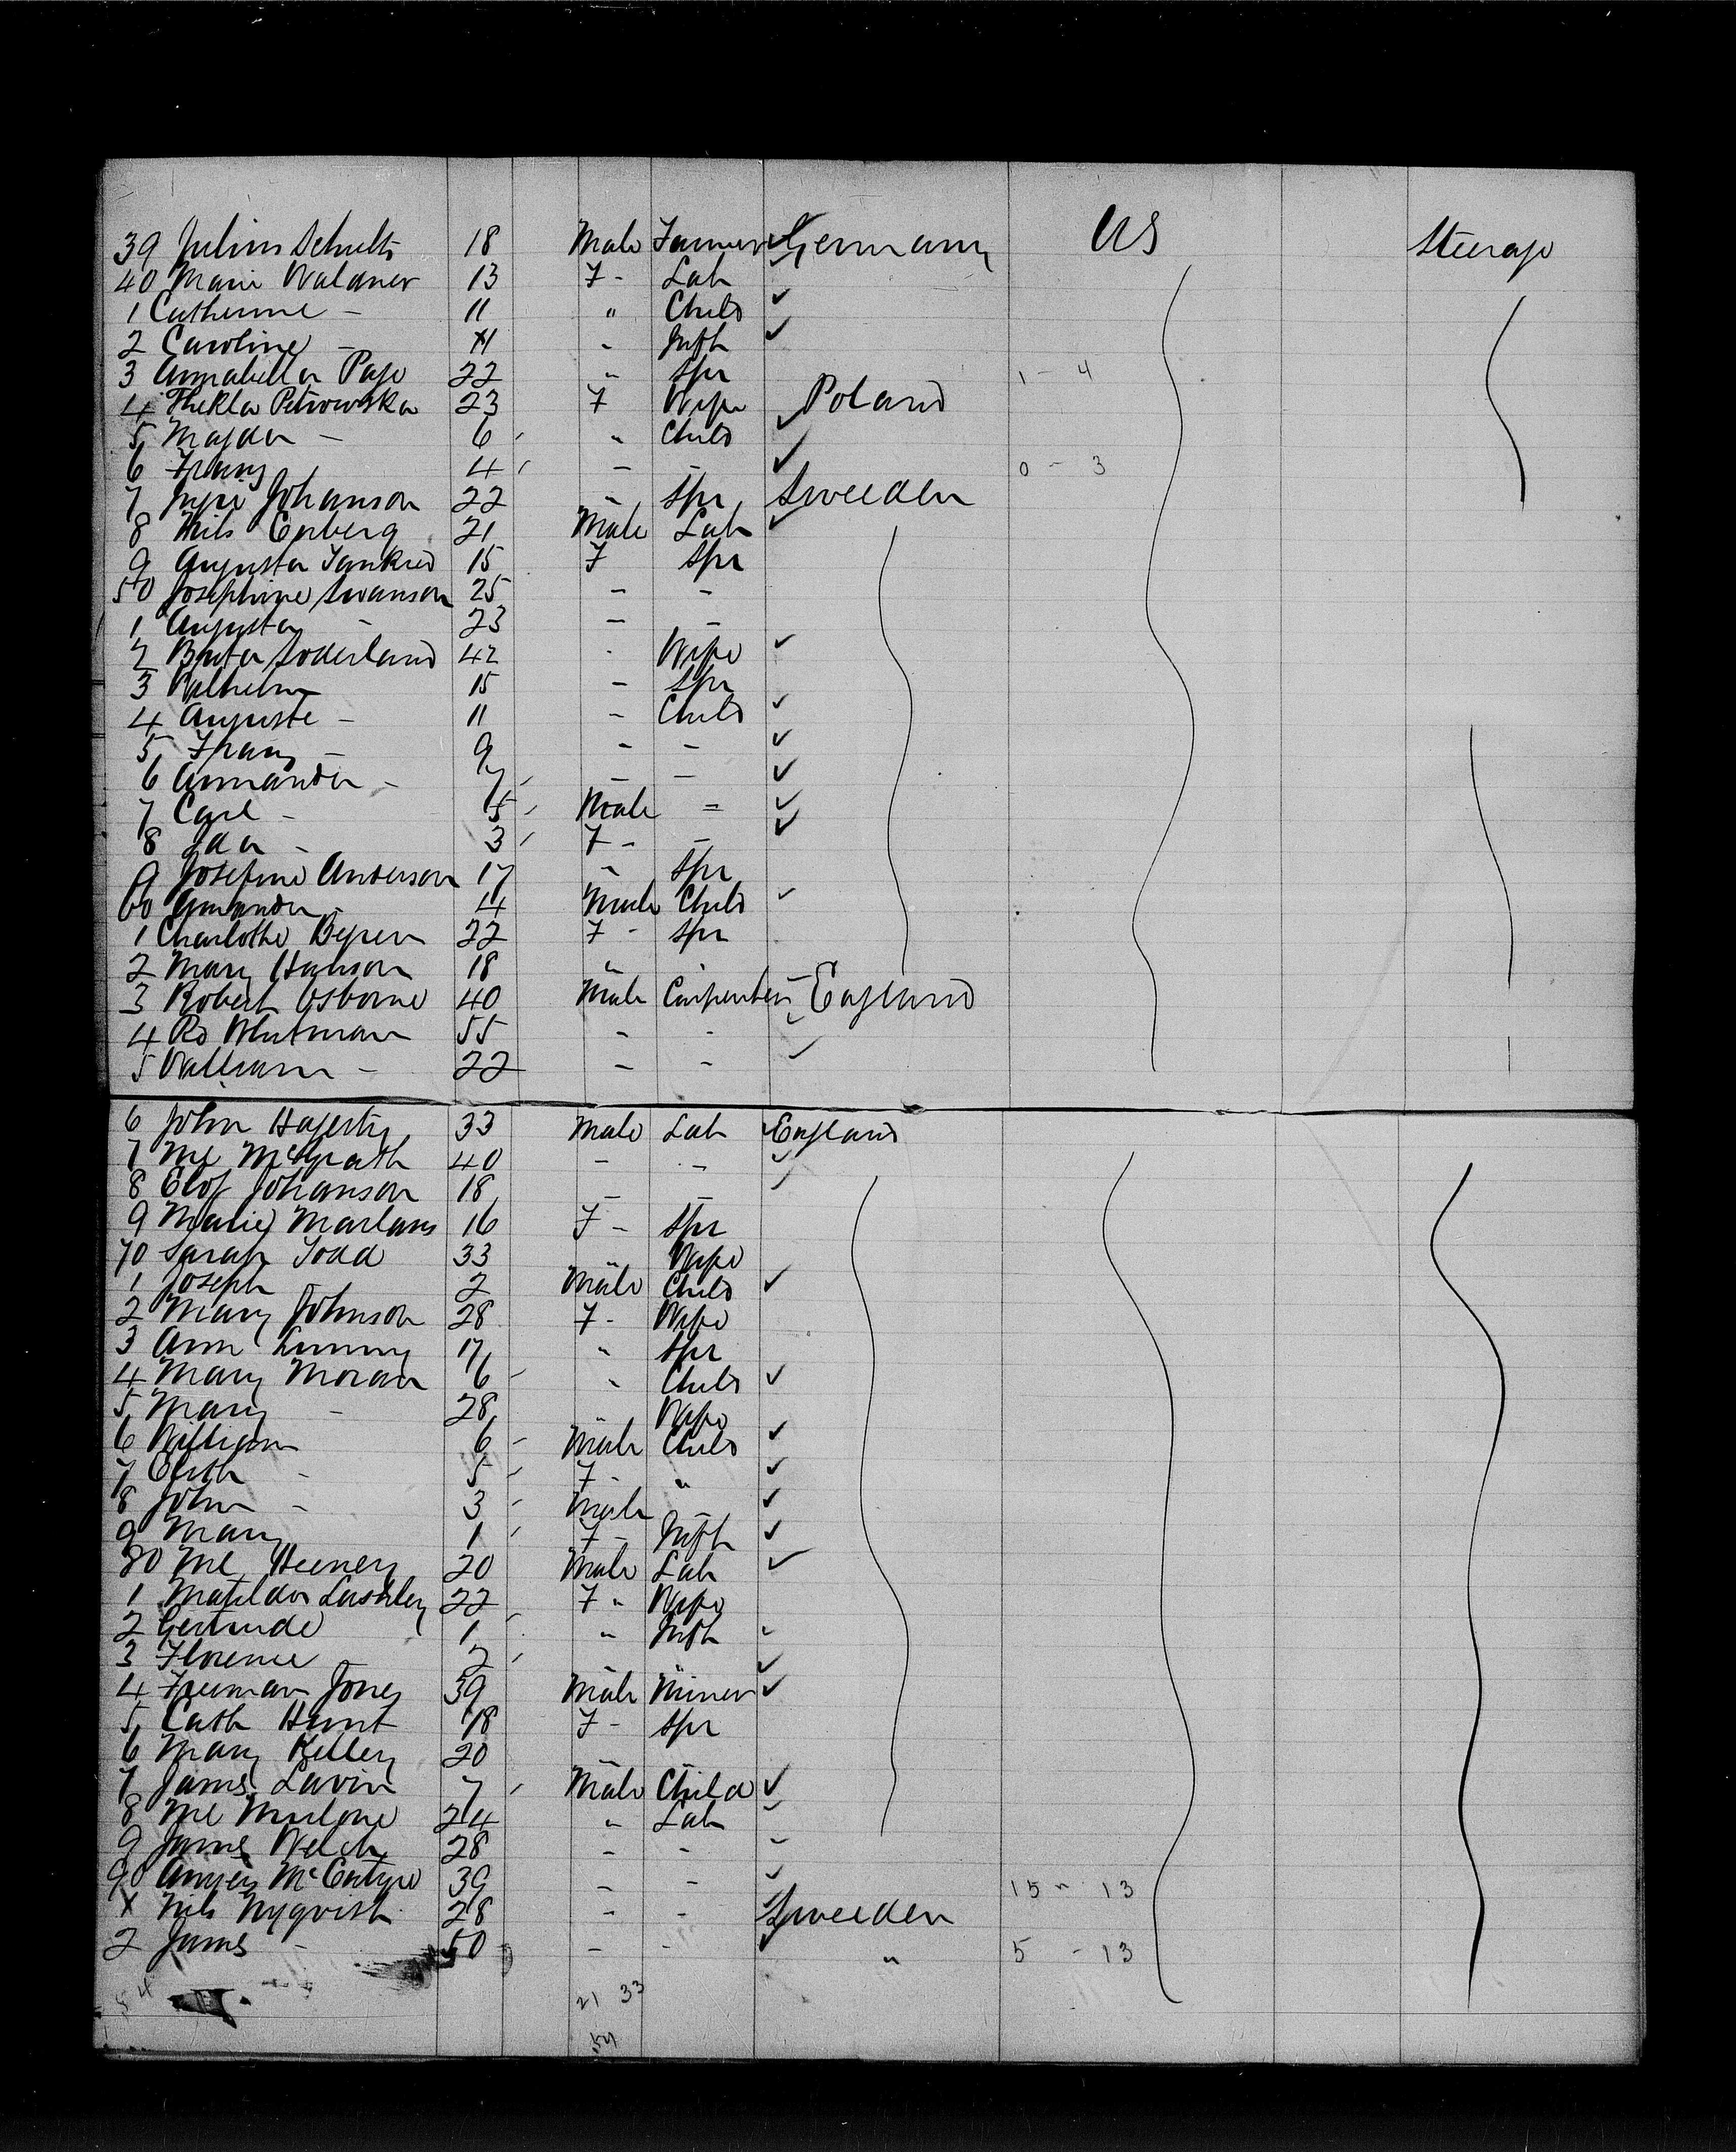 39 Julius Schults 18 Male Farmer Germany US Steerage
40 Marie Waldner 13 F - Lab
1 Catherine - 11 " Child
2 Caroline - Infh
3 Annabella Page 22 " Spr 1 - 4
4 Thekla Petrowska 23 F Wife Poland
5 Magda - 6 " Child
6 Franz 4 - - 0 - 3
7 Johanson 22 - Spr Sweeden
8 Nils Enberg 21 Male Lab
9 Augusta Tankred 15 F Spr
50 Josephine Swanson 25 - -
1 Augusta - 23 - -
2 Brita Soderland 42 - Wife
3 Wilhelm 15 - Spr
4 Auguste - 11 - Child
5 Franz - 9 - -
6 Amanda - 7 - -
7 Carl - 5 Male =
8 Ida - 3 F - -
9 Josefine Anderson 17 - Spr
60 Amanda - 4 Male Child
1 Charlotte 22 F - Spr
2 Mary Hanson 18 "
3 Robert Osborne 40 Male Carpenter England
4 Rd Whitman 55 - -
5 William - 22 - -
6 John Hagerty 33 Male Lab England
7 Ml McGrath 40 - -
8 Olof Johanson 18 - -
9 Marie 16 F - Spr
70 Sarah Todd 33 Wife
1 Joseph 2 Male Child
2 Mary Johnson 28 F - Wife
3 Ann 17 " Spr
4 Mary Moran 6 " Child
5 Mary - 28 Wife
6 William 6 Male Child
7 - 5 F - "
8 John - 3 Male -
9 Mary 1 F - Infh
80 Ml Heeney 20 Male Lab
1 Matilda Lashley 22 F " Wife
2 Gertrude 1 " Infh
3 Florence 2
4 Freeman Jones 39 Male Miner
5 Cath Hunt 18 F - Spr
6 Mary Kelley 20
7 James Lavin 7 Male Child
8 Ml Malone 24 " Lab
9 James Welch 28 - -
90 McEntyre 39 - - 15 - 13
X Nils Nyqvist 28 - - Sweeden
2 James - 50 - - " 5 - 13
54 21 33
54